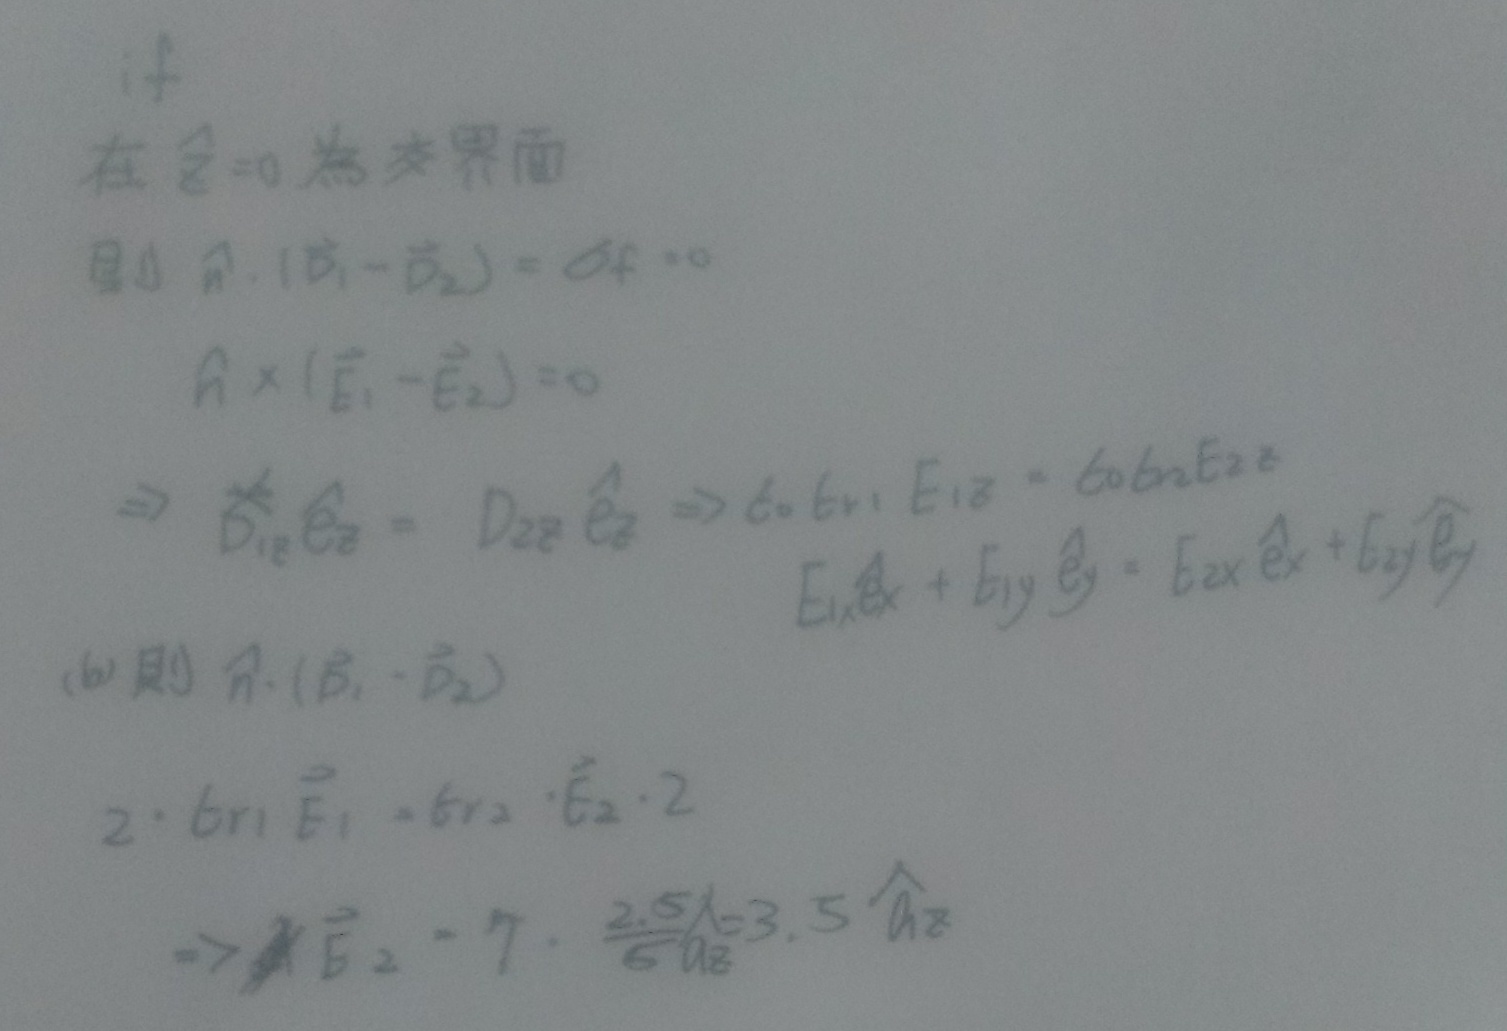 if
在 ẑ=0 為交界面
則 n̂·(D⃗₁-D⃗₂)=σf=0
n̂×(E⃗₁-E⃗₂)=0
⇒ D⃗₁z êz = D₂z êz ⇒ ε₀εr₁E₁z = ε₀εr₂E₂z
E₁xêx + E₁yêy = E₂xêx + E₂yêy
(b) 則 n̂·(D⃗₁-D⃗₂)
2·εr₁E⃗₁ = εr₂·E⃗₂·2
⇒ E⃗₂ = 7·2.5/5 âz=3.5 âz